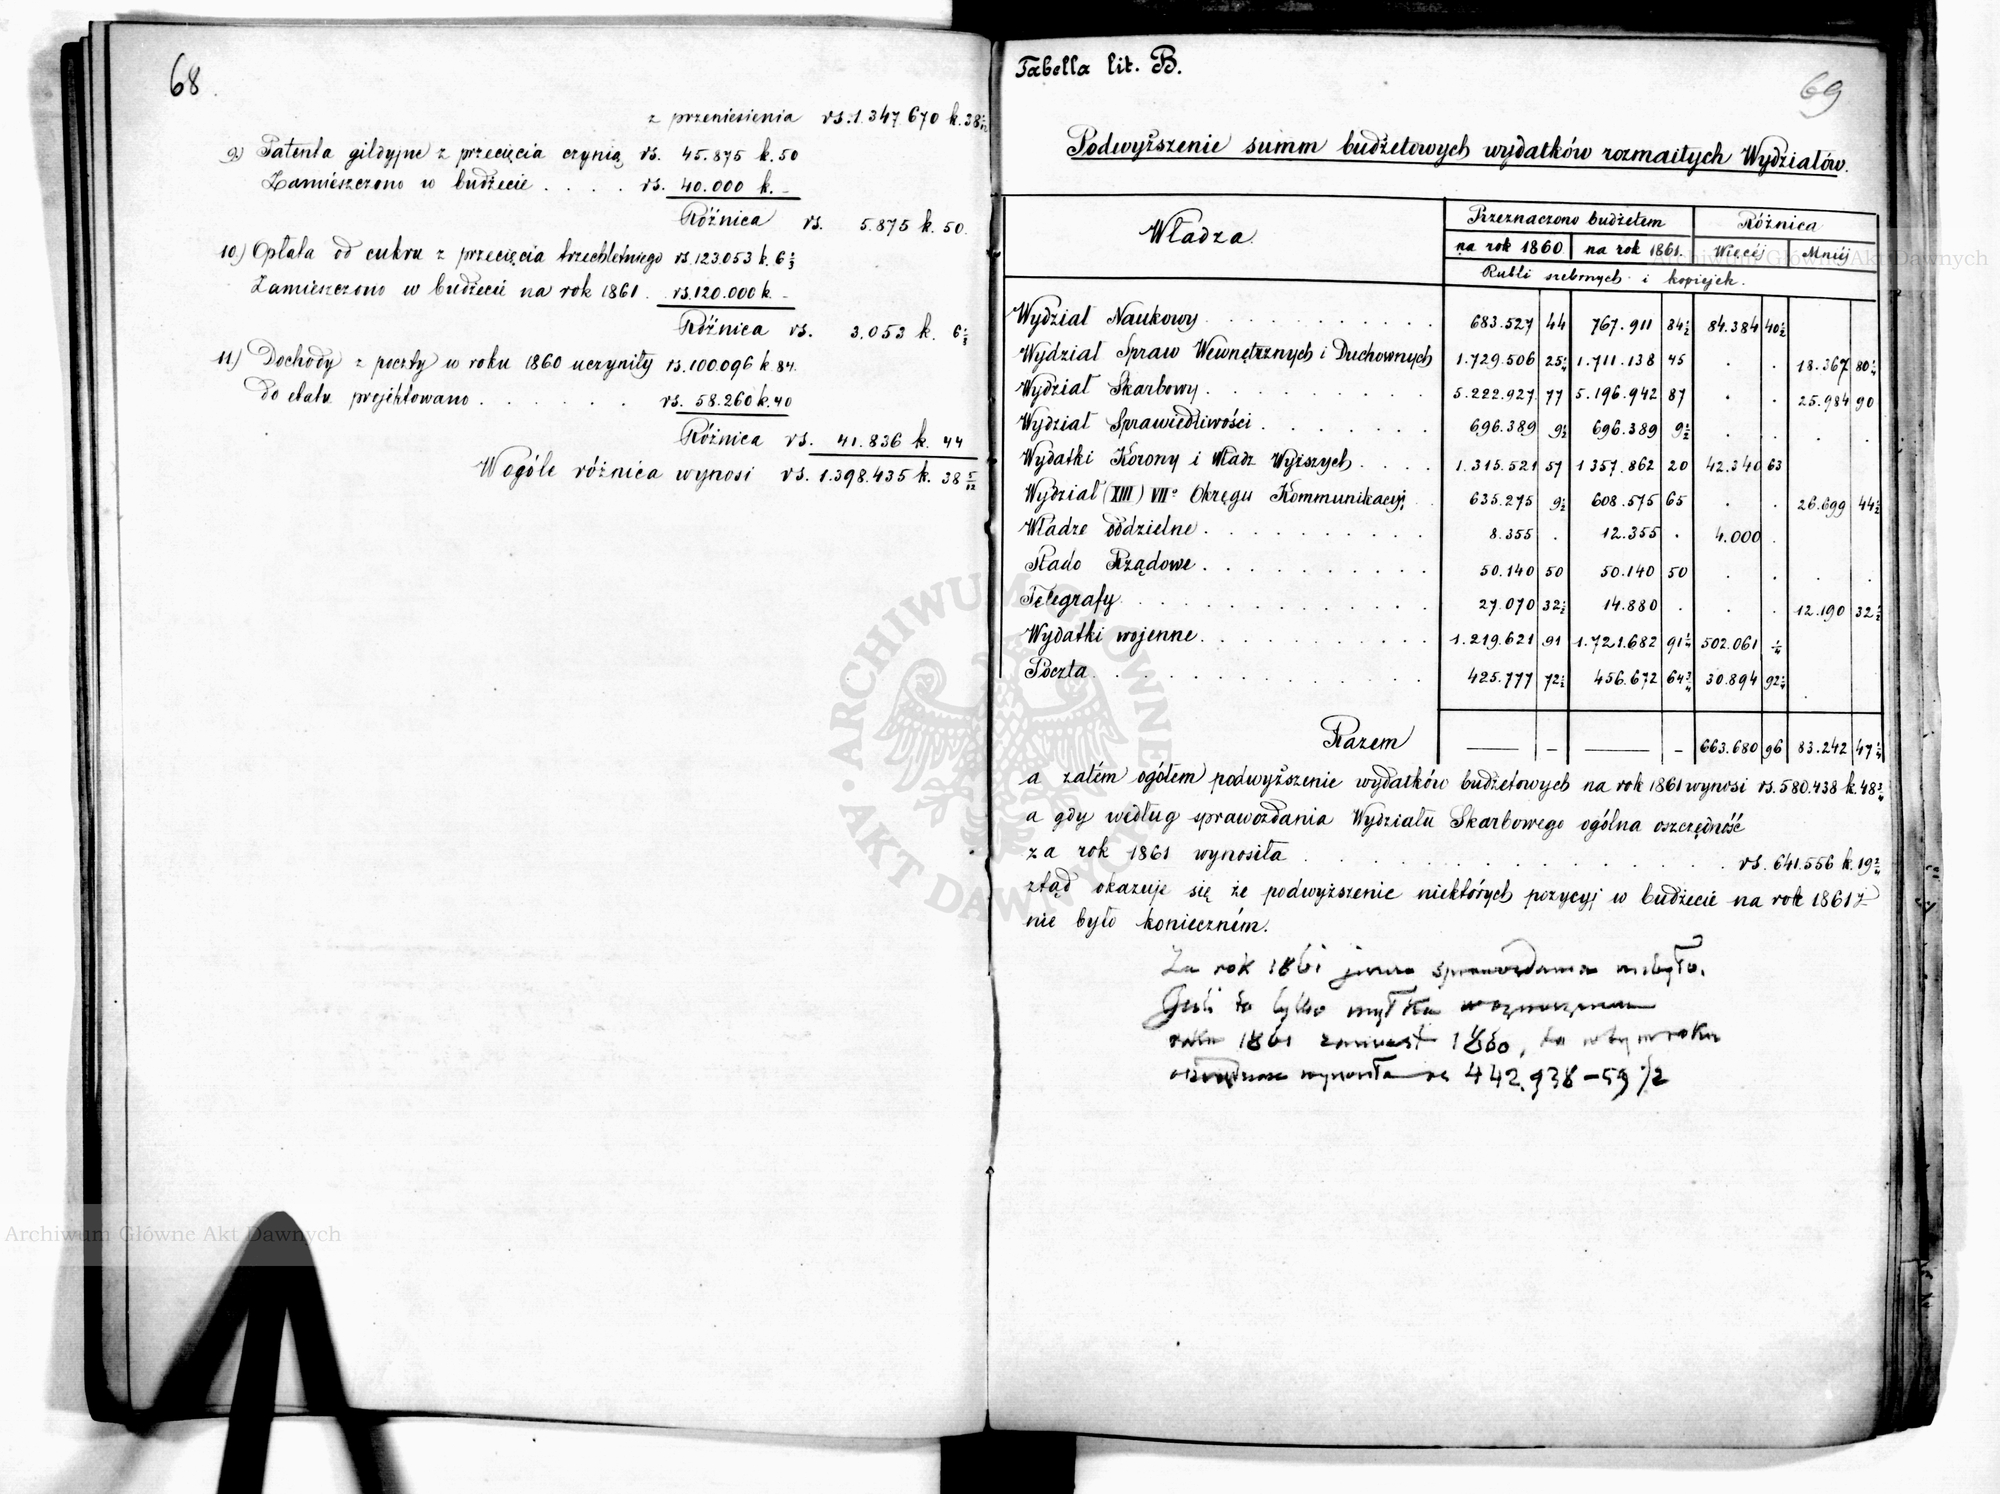 68
z przeniesienia rs. 1.347.670 k. 38 5/12
9) Patenta gildyjne z przecięcia czynią rs. 45.875 k. 50
Zamieszczono w budżecie . . . . rs. 40.000 k. –
Różnica rs. 5.875 k. 50.
10.) Opłata od cukru z przecięcia trzechletniego rs. 123.053 k. 6
Zamieszczono w budżecie na rok 1861 . rs. 120.000 k. –
Różnica rs. 3.053 k. 6
11) Dochody z poczty w roku 1860 uczyniły rs. 100.096 k. 84.
do etatu projektowano . . . . . . rs. 58.260 k. 40
Różnica rs. 41.836 k. 44
W ogóle różnica wynosi rs. 1.398.435 k. 38 5/12
Tabella lit. B.
69
Podwyższenie summ budżetowych wydatków rozmaitych Wydziałów.
Władza. Przeznaczono budżetem Różnica
na rok 1860 na rok 1861. Więcéj Mniéj
Rubli srebrnych i kopiejek.
Wydział Naukowy . . . . . . . . . . 683.527 44 767.911 84½ 84.384 40½
Wydział Spraw Wewnętrznych i Duchownych 1.729.506 25¼ 1.711.138 45 . . 18.367 80¼
Wydział Skarbowy . . . . . . . . . . 5.222.927 77 5.196.942 87 . . 25.984 90
Wydział Sprawiedliwości . . . . . . . 696.389 9½ 696.389 9½ . . . .
Wydatki Korony i Władz Wyższych . . . . 1.315.521 57 1357.862 20 42.340 63
Wydział (XIII) VIIo Okręgu Kommunikacyj . 635.275 9½ 608.575 65 . . 26.699 44½
Władze oddzielne . . . . . . . . . . 8.355 . 12.355 . 4.000 .
Rządowe . . . . . . . . . . 50.140 50 50.140 50 . . .
Telegrafy . . . . . . . . . . . . 27.070 32½ 14.880 . . . 12.190 32½
Wydatki wojenne . . . . . . . . . . 1.219.621 91 1.721.682 91¼ 502.061 ¼
Poczta . . . . . . . . . . . . . 425.777 72½ 456.672 64¾ 30.894 92¼
Razem — – — – 663.680 96 83.242 47¼
a zatém ogółem podwyższenie wydatków budżetowych na rok 1861 wynosi rs. 580.438 k. 48¾
a gdy według sprawozdania Wydziału Skarbowego ogólna oszczędność
za rok 1861 wynosiła . . . . . . . . . . . rs. 641.556 k. 19¾
ztąd okazuje się że podwyższenie niektórych pozycyj w budżecie na rok 1861
nie było konieczném.
Za rok 1861 jeszcze sprawozdania niebyło.
Jeśli to tylko myłka w oznaczeniu
roku 1861 zamiast 1860, to w tym roku
oszczędność wynosiła rs 442,938–59½
ARCHIWUM GŁÓWNE
AKT DAWNYCH
Archiwum Główne Akt Dawnych
Archiwum Główne Akt Dawnych